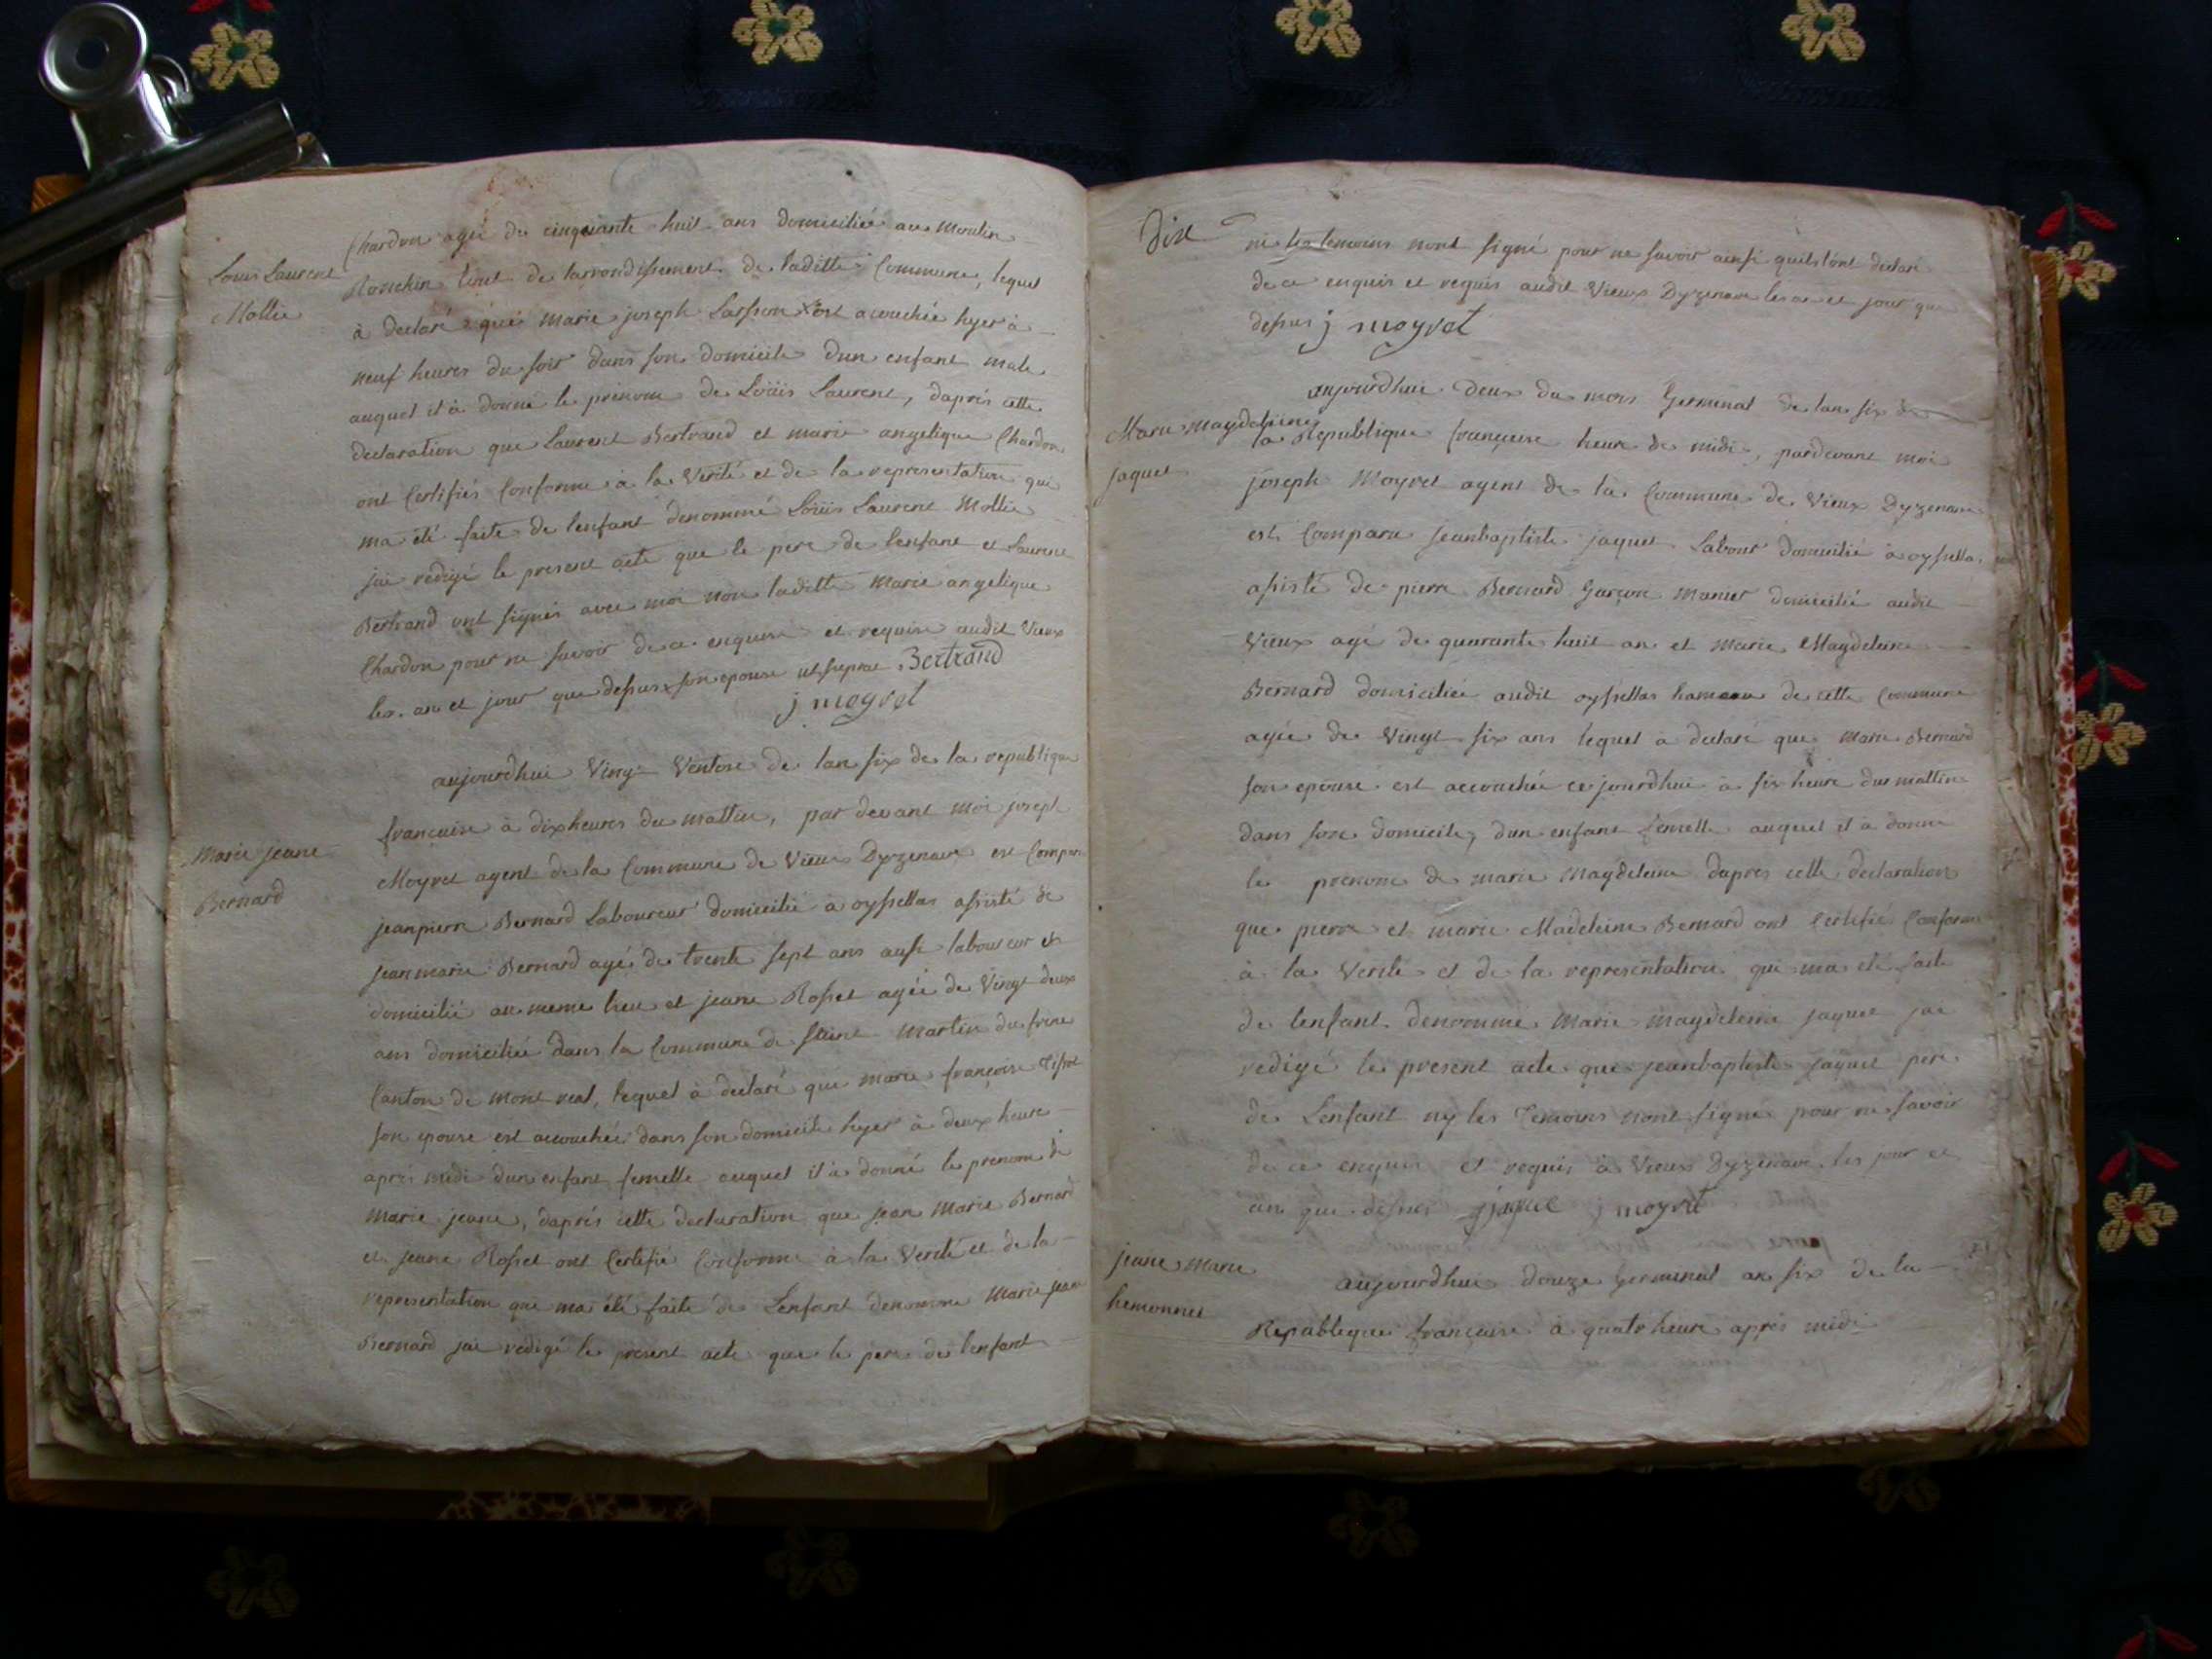 Louis Laurent
Mollie
Chardon agée de cinquante huit ans domiciliée au Moulin
tout de larrondissement de laditte Commune, lequel
à declaré que marie joseph Lasson x est acouchée hyer à
neuf heures du soir dans son domicile dun enfant male
auquel il à donné le prénom de Loüis Laurent, daprés cette
declaration que Laurent Bertrand et marie angelique Chardon
ont Certifiés Conforme à la Verité et de la representation qui
ma été faite de lenfant denommé Loüis Laurent Mollie
jai redigé le present acte que le pere de lenfant et Laurent
Bertrand ont signés avec moi non laditte Marie angelique
Chardon pour ne savoir de ce enquise et requise audit Vieux
les an et jour que dessus x son epouse ut supra Bertrand
j moyret
Marie jeane
Bernard
aujourdhui Vingt Ventose de lan six de la republique
francaise à dix heures du mattin, par devant moi joseph
Moyret agent de la Commune de Vieux Dyzenave est Comparu
jeanpierre Bernard Laboureur domicilié à oyssellas assisté de
jeanmarie Bernard agé de trente sept ans aussi laboureur et
domicilié au meme lieu et jeane Rosset agée de Vingt deux
ans domiciliée dans la Commune de saint Martin du frene
Canton de Mont real, lequel à declaré que marie francoise Tissot
son epouse est accouchée dans son domicile hyer à deux heure
aprés midi dun enfant femelle auquel il à donné le prenom de
Marie jeane, daprés cette declaration que jean Marie Bernard
et jeane Rosset ont Certifié Conforme à la Verité et de la
representation que ma été faite de Lenfant denommé Marie jeane
Bernard jai redigé le present acte que le pere de lenfant
Dixe
ni les temoins nont signé pour ne savoir ainsi quils lont declaré
de ce enquis et requis audit Vieux Dyzenave les an et jour que
dessus j moyret
Marie magdeleine
jaquet
aujourdhui deux du mois Germinal de lan six de
la Republique francaise heure de midi, pardevant moi
joseph Moyret agent de la Commune de Vieux Dyzenave
est Comparu jeanbaptiste jaquet Labour domicilié à oyssellas
assisté de pierre Bernard Garçon Manier domicilié audit
Vieux agé de quarante huit an et Marie Magdeleine
Bernard domiciliée audit oyssellas hameau de cette Commune
agée de Vingt six ans lequel a declaré que Marie Bernard
son epouse est accouchée ce jourdhui à six heure du mattin
dans son domicile, dun enfant femelle auquel il à donné
le prenom de marie Magdeleine dapres cette declaration
que pierre et marie Madeleine Bernard ont Certifié Conforme
à la Verité et de la representation qui ma été faite
de lenfant denommé Marie magdeleine jaquet jai
redigé le present acte que jeanbaptiste jaquet pere
de Lenfant ny les Temoins nont signé pour ne savoir
de ce enquis et requis à Vieux Dyzenave les jour et
an que dessus j moyret
jeane Marie
hemonnet
aujourdhui douze Germinal an six de la
Republique francaise à quatre heure aprés midi